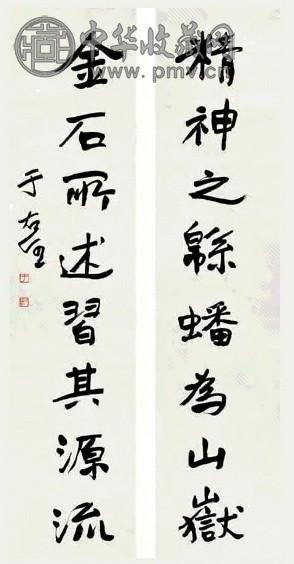 中华收藏网
www.pmv.cn
精神之緜蟠為山嶽
金石所述習其源流
于右任